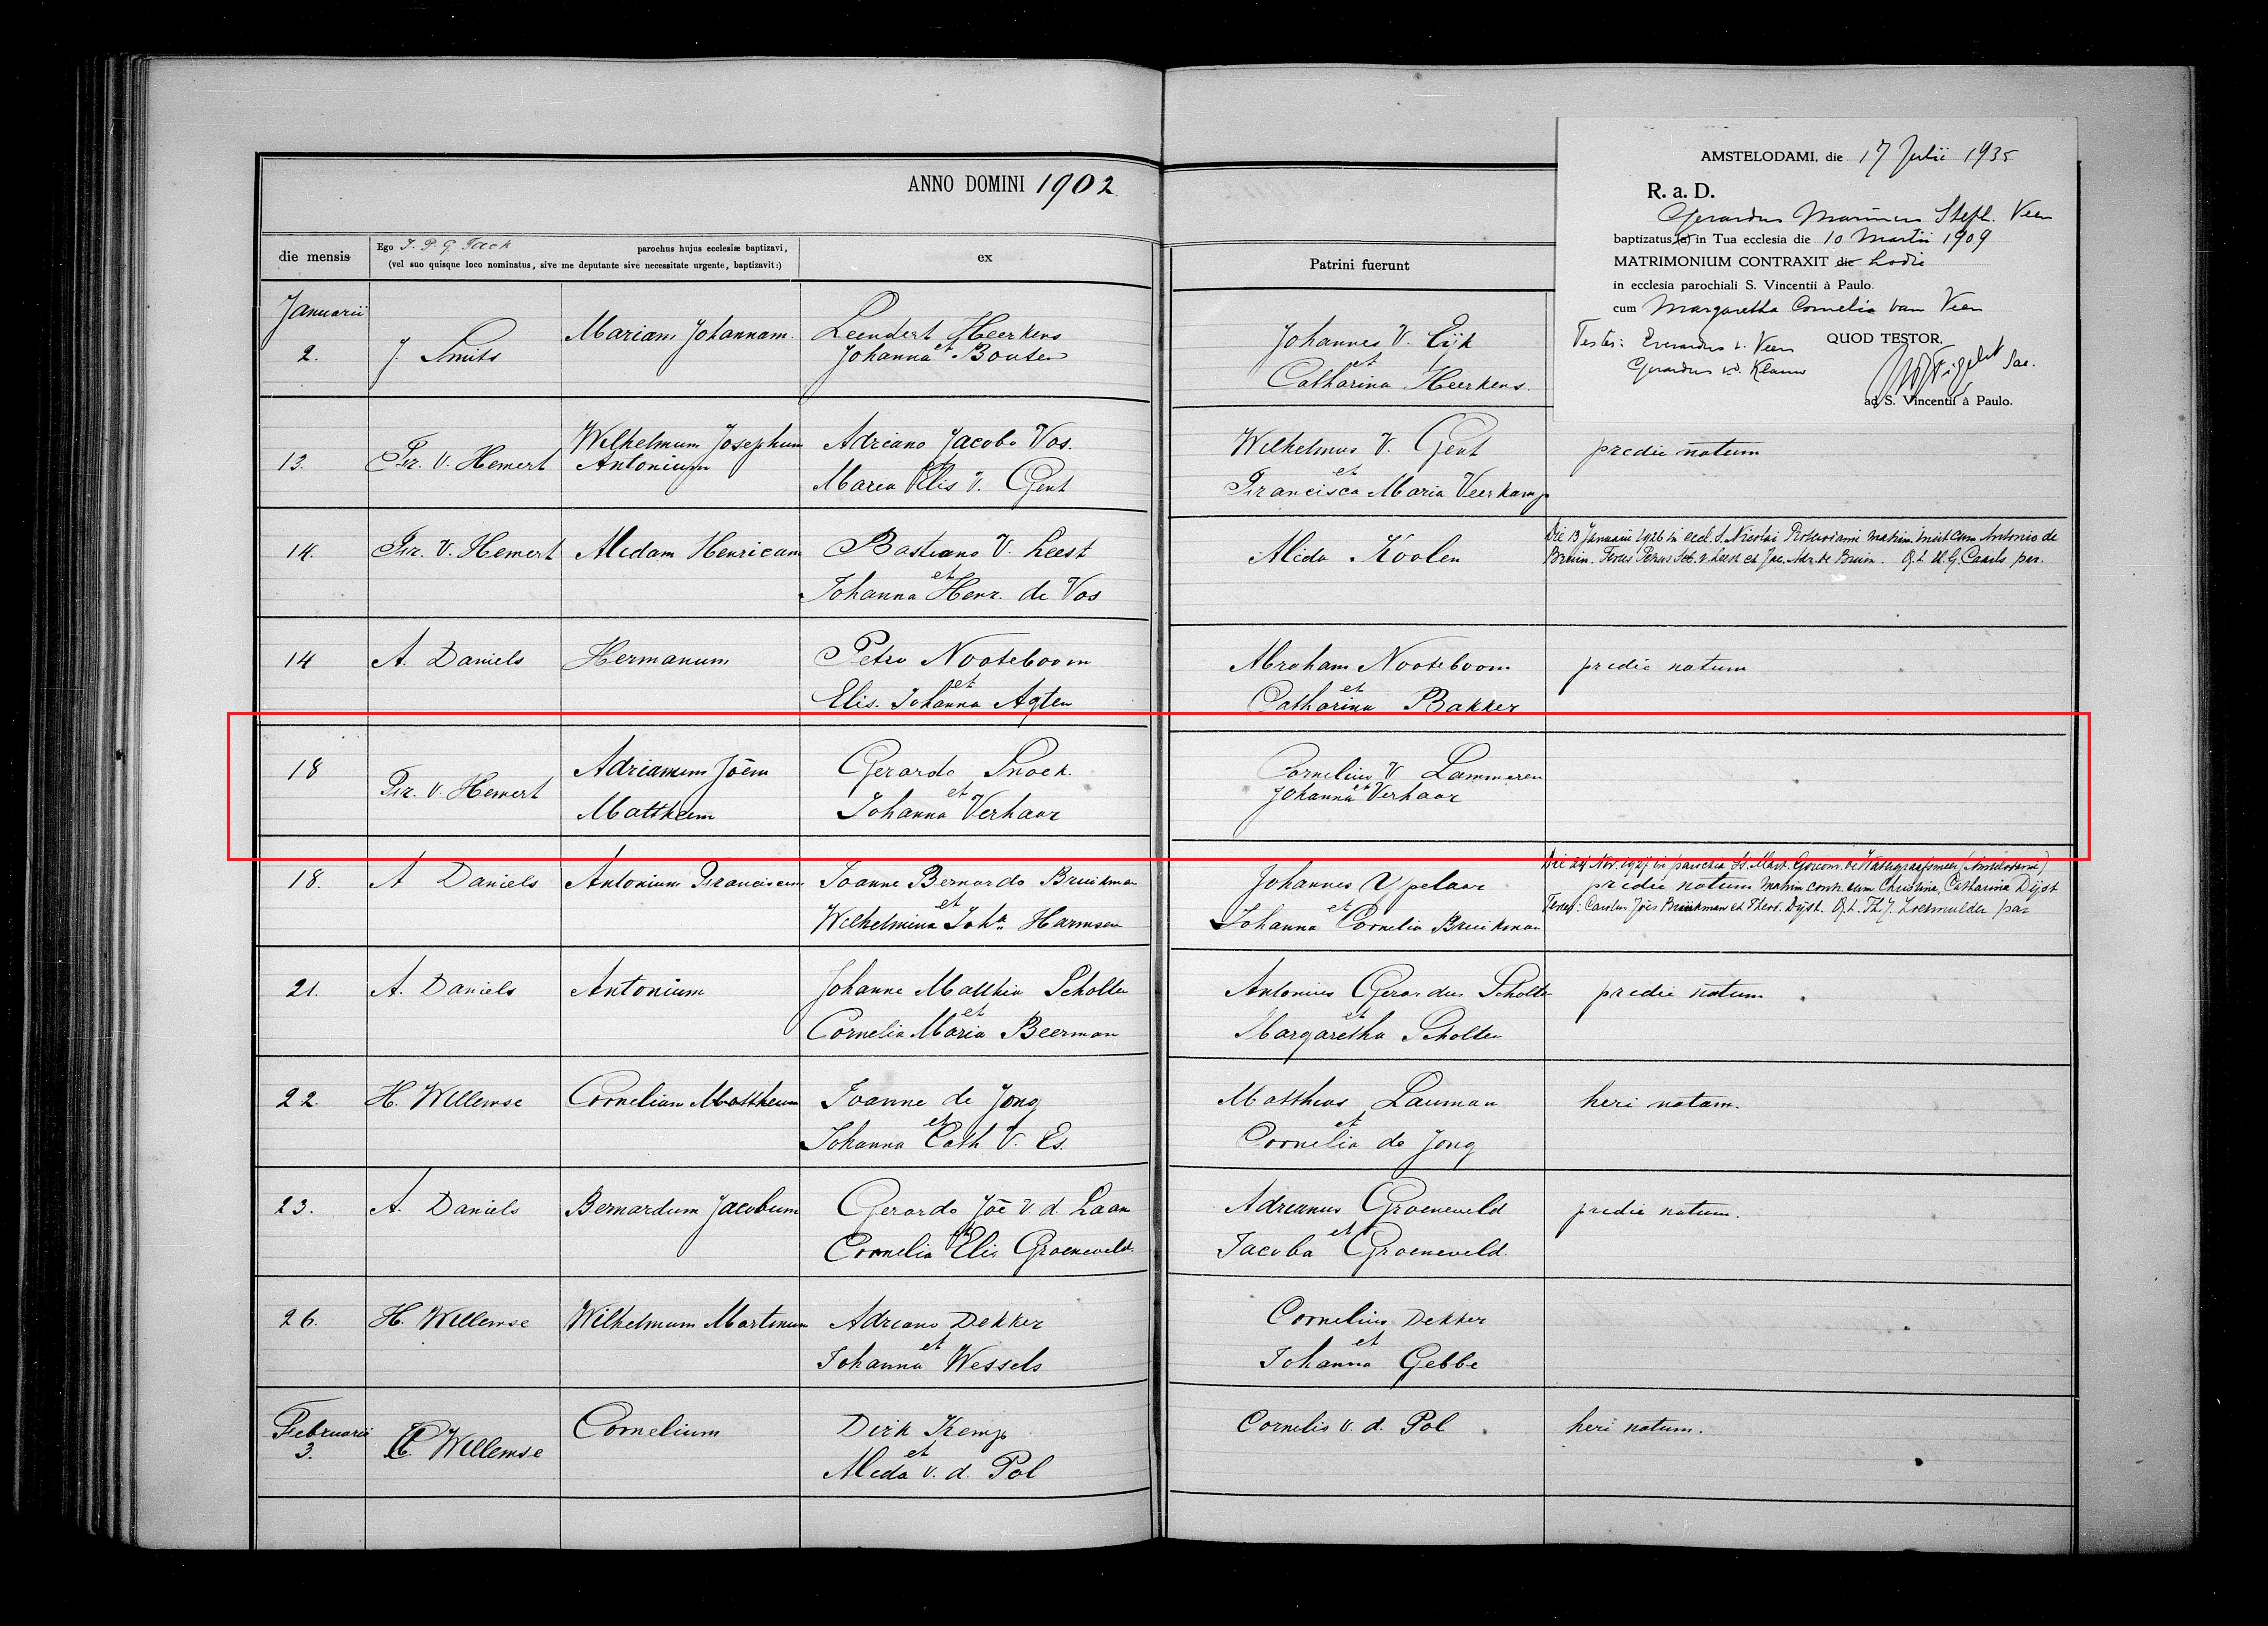 ANNO DOMINI 1902
die mensis
Ego J. P. G. Tack parochus hujus ecclesiæ baptizavi,
(vel suo quisque loco nominatus, sive me deputante sive necessitate urgente, baptizavit:)
ex
Patrini fuerunt
AMSTELODAMI, die 17 Julii 1935
R. a. D.
Gerardus Marinus Steph. Veen
baptizatus (a) in Tua ecclesia die 10 Martii 1909
MATRIMONIUM CONTRAXIT die hodie
in ecclesia parochiali S. Vincentii à Paulo.
cum Margaretha Cornelia van Veen
Testes: Everardus v. Veen QUOD TESTOR,
Gerardus v.d. Klauw
Sac.
ad S. Vincentii à Paulo.
Januarii
2. J. Smits Mariam Johannam. Leendert Heerkens
et
Johanna Bouten
Johannes V. Eijk
et
Catharina Heerkens.
13. Fr. V. Hemert Wilhelmum Josephum
Antonium
Adriano Jacobo Vos.
Maria Elis V. Gent
Wilhelmus V. Gent
et
Francisca Maria Veerkamp
predie natum
14. Fr. V. Hemert Alidam Henricam Bastiano V. Leest
et
Johanna Henr. de Vos
Alida Koolen
Die 13 Januarii 1926 in eccl. S. Nicolai matrim. iniit cum Antonio de
Bruin. Testes Petrus Seb. v. Leest et Jac. Adr. de Bruin. Q. t. H. G. Caarls par.
14 A. Daniels Hermanum Petro Nooteboom
et
Elis. Johanna Agten
Abraham Nooteboom
et
Catharina Bakker
predie natum
18 Fr. V. Hemert Adrianum Jōēm
Mattheum
Gerardo Snoek.
et
Johanna Verhaar
Cornelius V Lammeren
et
Johanna Verhaar
18. A Daniels Antonium Franciscum Joanne Bernardo Bruikman
et
Wilhelmina Joh.a Harmsen
Johannes Ypelaar
et
Johanna Cornelia Bruikman
Die 24 Nov. 1927 in parochia Ss. Mart. Gorcom. de Watergraafsmeer (Amstelodami)
predie natum matrim contr. cum Christina Catharina Dijst
Testes: Carolus Jōēs Bruikman et Theod. Dijst. Q. t. Th. J. par
21. A. Daniels Antonium Johanne Matthia Scholten
et
Cornelia Maria Beerman
Antonius Gerardus Scholte
et
Margaretha Scholten
predie natum
22. H. Willemse Cornelium Mattheum Joanne de Jong
et
Johanna Cath V. Es.
Mattheus Lauman
et
Cornelia de Jong
heri natam.
23. A. Daniels Bernardum Jacobum Gerardo Jōē V d. Laan
et
Cornelia Elis Groeneveld.
Adrianus Groeneveld
et
Jacoba Groeneveld.
predie natum.
26. H. Willemse Wilhelmum Martinum Adriano Dekker
et
Johanna Wessels
Cornelius Dekker
et
Johanna Gebbe
Februarii
3. H. Willemse Cornelium Dirk Kemp
et
Alida v. d. Pol
Cornelis v. d. Pol
heri natum.